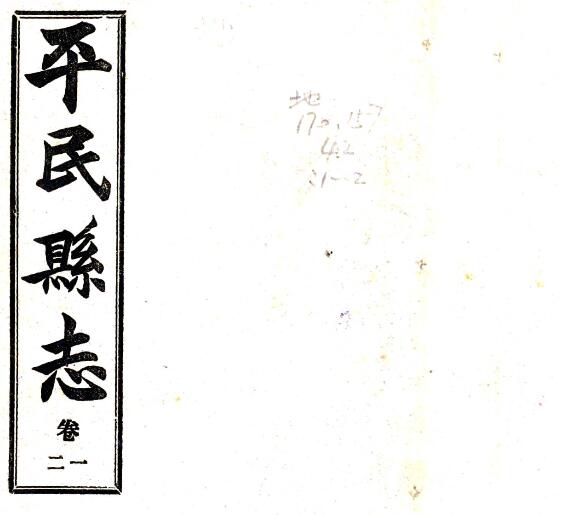 平民縣志
卷
一二
地
170.157
42